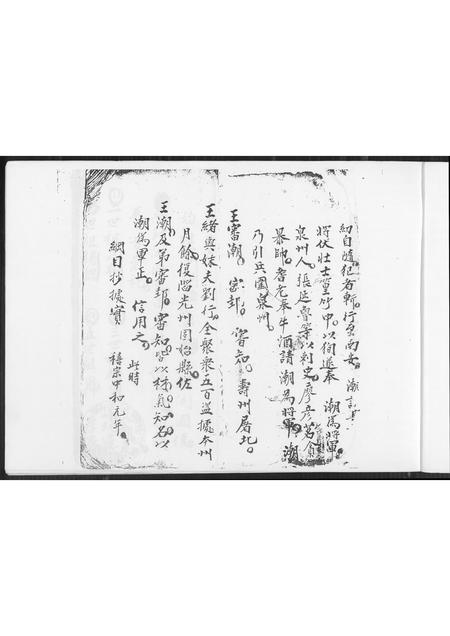 幼自隨犯者斬。行至南安。潮言其
將伏壮士篁竹中。以伺進奉 潮為將軍。
泉州人。張延魯等以刺史。廖彦若貪
暴帥。耆老奉牛酒請 潮為將軍。潮
乃引兵圍泉州。
王審潮。審邽。審知。壽州屠北。
王緒與妹夫劉行全聚衆五百盗據本州
月餘復陷光州固始縣。佐
王潮。及弟審邽。審知。皆以材氣知名。以
潮為軍正。信用之。此時
綱目抄據實 禧宗中和元年。